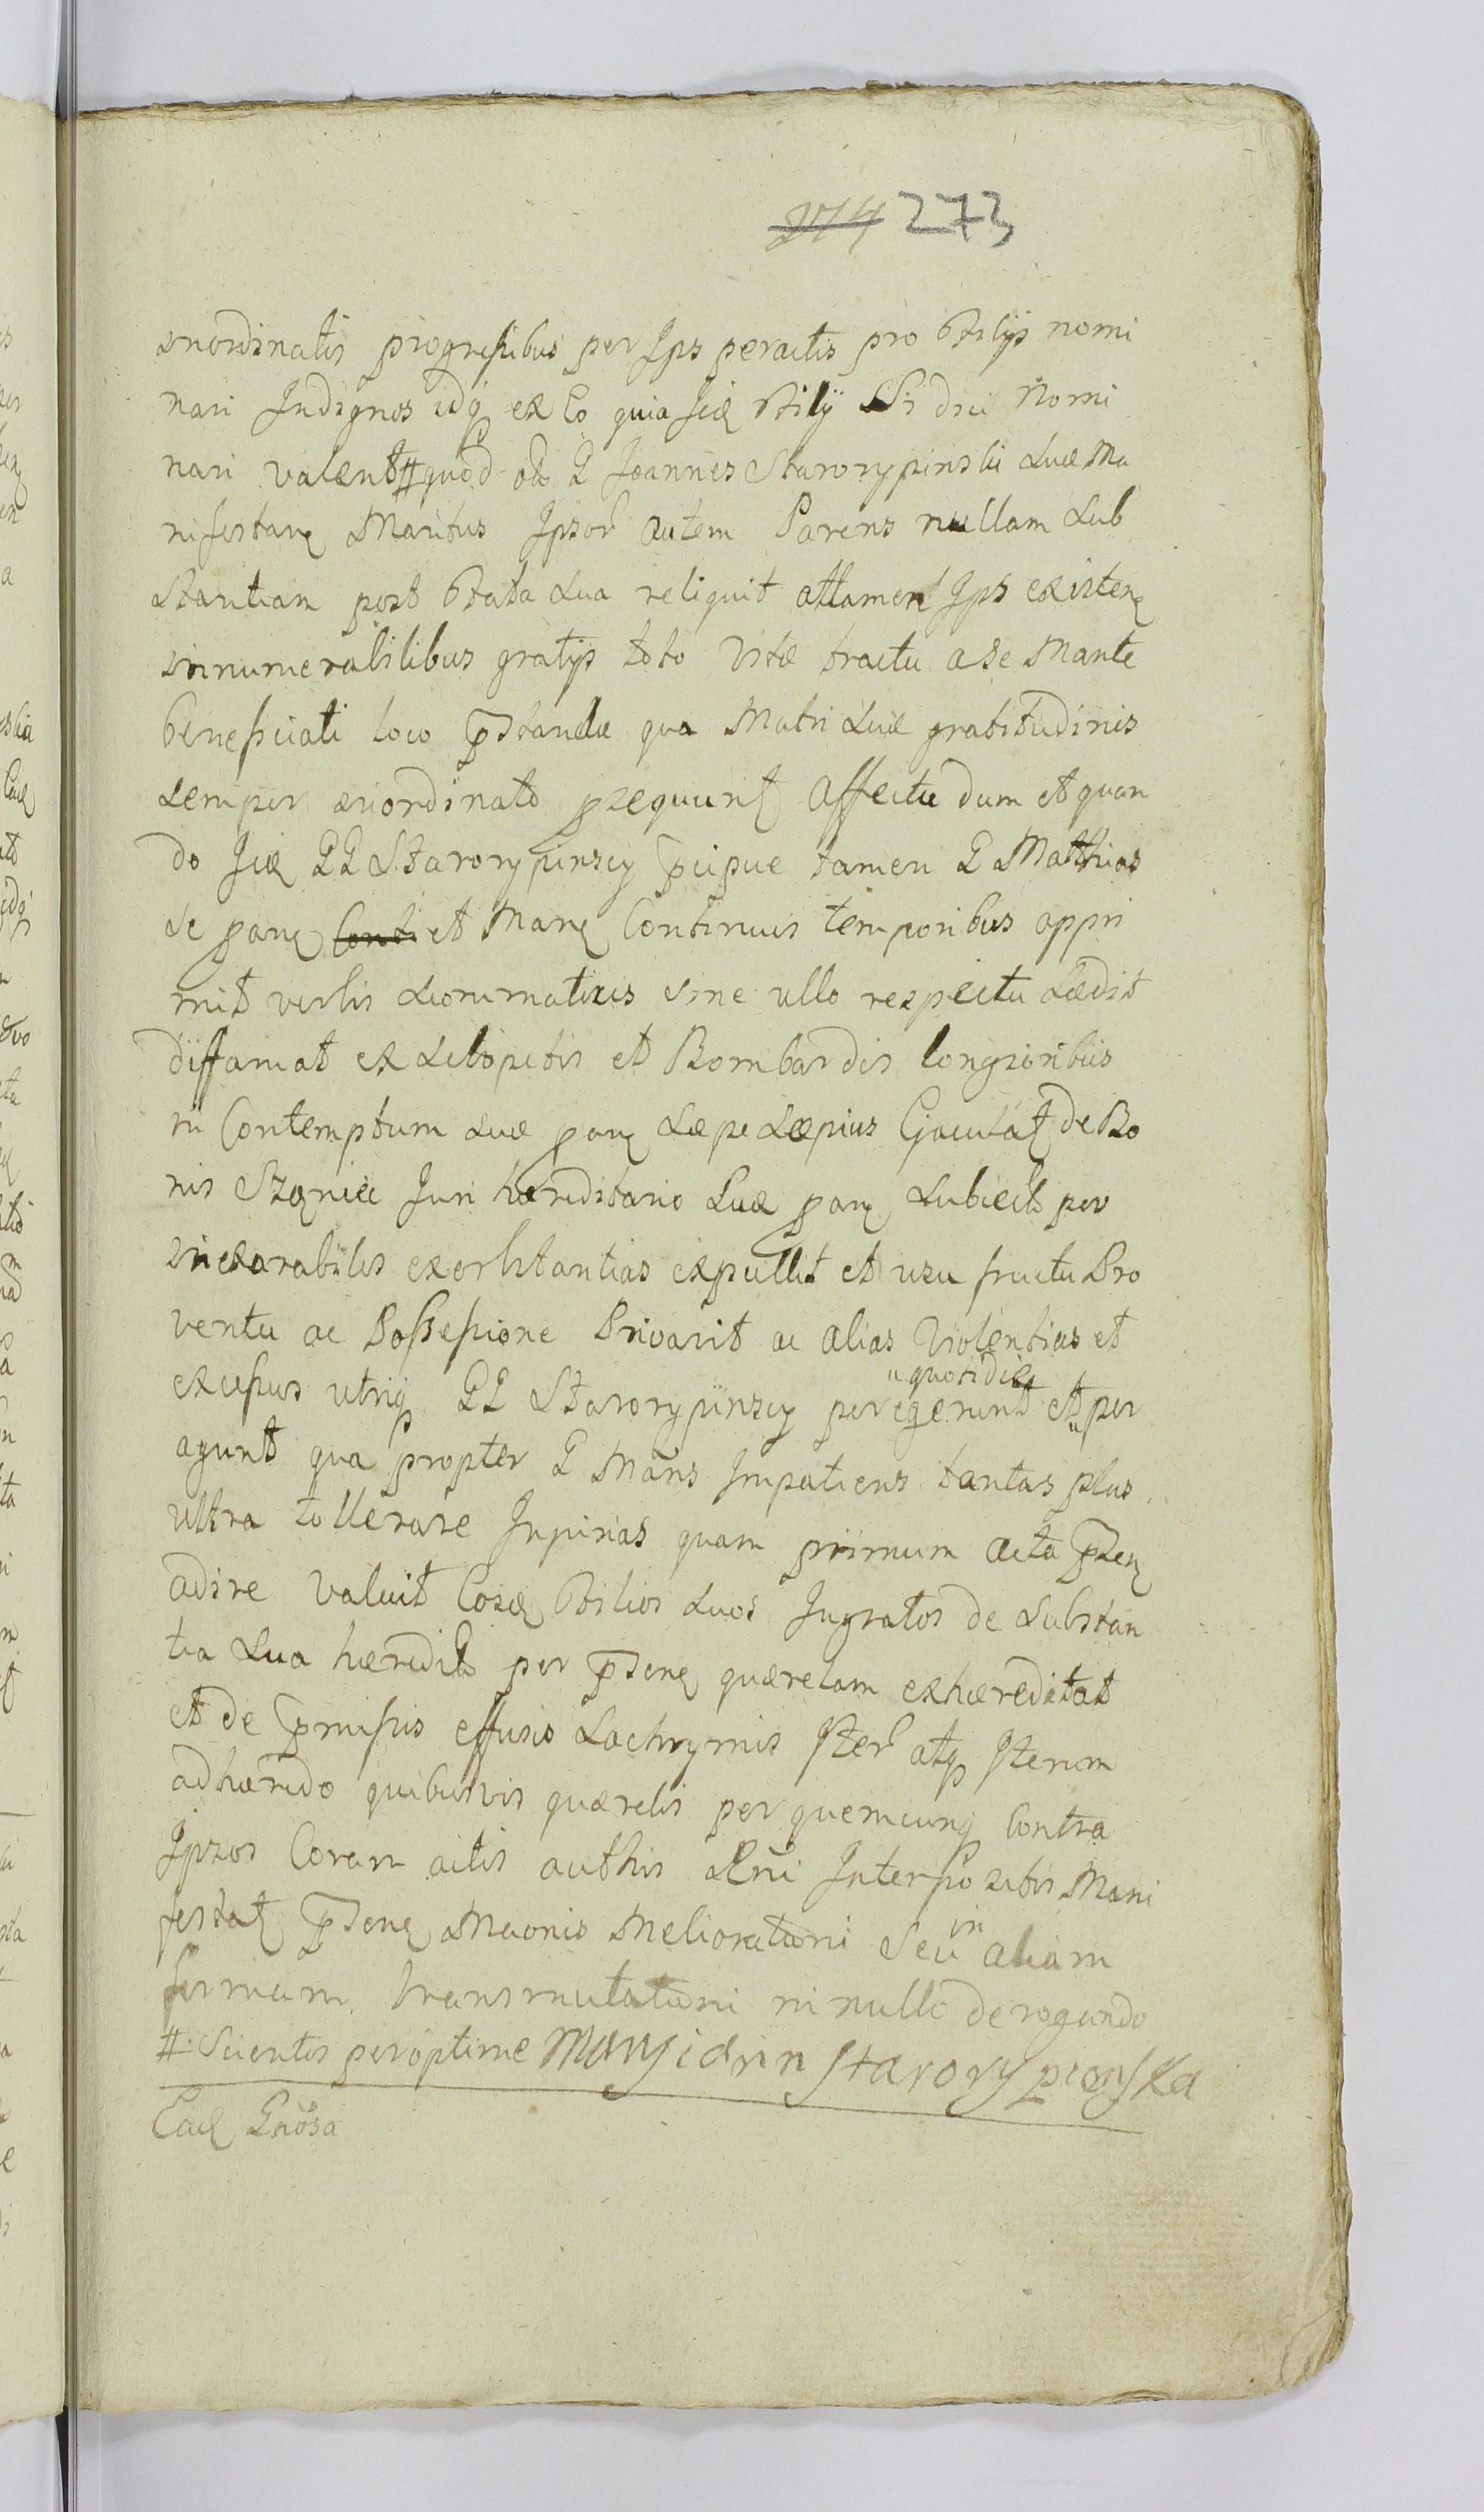 274 273
inordinatis progressibus per Ips peractis pro Filijs nomi
nari Indignos idq ex Eo quia Iidē Filij Si dici Nomi
nari valent # quod olī G Joannes Starorypinski Suæ Ma
nifestanē Maritus Ipsor̄ autem Parens nullam Sub
stantiam post Fata Sua reliquit attamen Ips existenē
innumerabilibus gratijs toto Vitæ tractu a Se Mante
beneficiati loco p̄standæ qua Matri Suæ gratitudinis
semper inordinato prequunt Affectu dum et quan
do Iidē GG Starorypinscy p̄cipue tamen G Matthias
Se panē Conti et Manē Continuis temporibus oppri
mit verbis ... sine ullo respectu Lædit
diffamat ex Sclopetis et Bombardis longioribus
in Contemptum Suæ panē Sæpe Sæpius Ejaculat de Bo
nis ... Juri hæreditario Suæ panē Subiects per
inexarabilis exorbitantias expullit et usu fructu Pro
ventu ac Possessione Privavit ac alias Violentias et
excessus utriq GG Starorypinscy peregerunt et quotidie per
agunt qua propter G Mans Impatiens tantas plus
ultra tollerare Injurias quam primum Acta p̄senē
adire valuit Eosdē Filios Suos Ingratos de Substan
tia Sua hæredits per p̄senē quærelam exhæreditat
et de p̄missis effusis Lachrymis Iter̄ atq Iterum
adhærendo quibusvis quærelis per quemcunq Contra
Ipsos Coram actis authis Reni Interpositis Mani
festat p̄senē Maonis Melioratoni Seu in aliam
formam transmutatoni in nullo derogando
# Scientis peroptime Maryianna Starorypienska
Eadē Gnosa